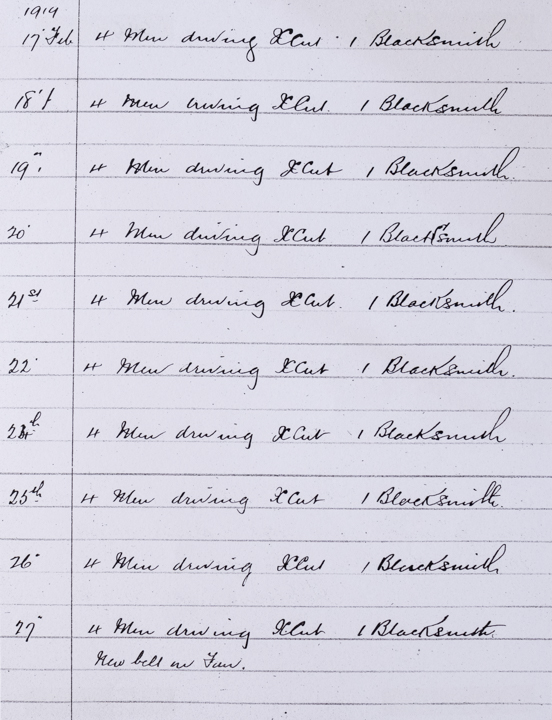 1919
17th Feb 4 Men driving XCut 1 Blacksmith
18th 4 Men driving XCut. 1 Blacksmith
19" 4 Men driving XCut 1 Blacksmith.
20" 4 Men driving XCut 1 Blacksmith
21st 4 Men driving XCut. 1 Blacksmith.
22" 4 Men driving XCut 1 Blacksmith.
24th 4 Men driving XCut 1 Blacksmith
25th 4 Men driving XCut 1 Blacksmith.
26" 4 Men driving XCut 1 Blacksmith
27" 4 Men driving XCut 1 Blacksmith.
New belt on Fan.